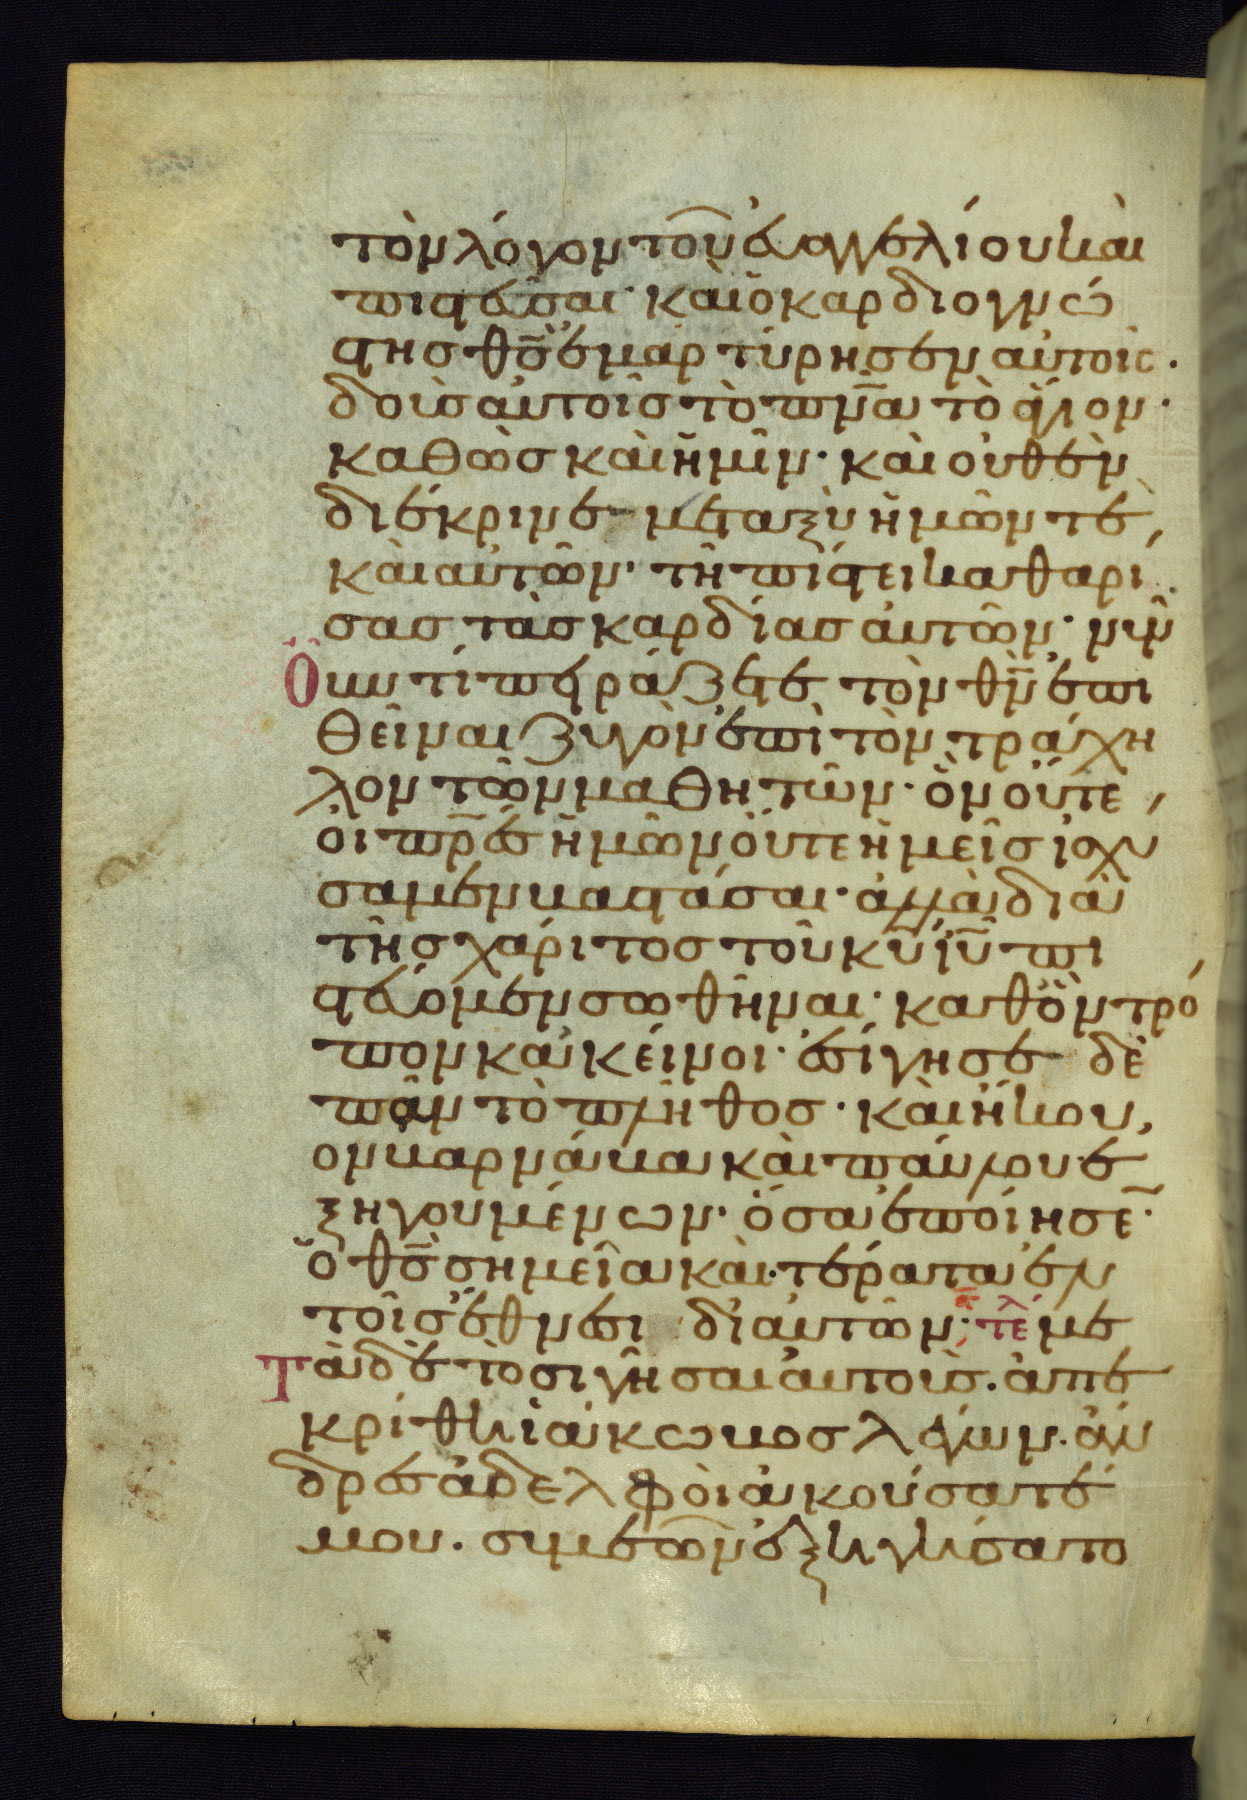 τὸν λόγον τοῦ εὐαγγελίου καὶ
πιστεῦσαι· καὶ ὁ καρδιογνώ
στησ θ̅ς̅ ἐμαρτύρησεν αὐτοῖς·
δοὺσ αὐτοῖσ τὸ πν̅α̅ τὸ ἅγιον·
καθὼσ καὶ ἡμῖν· καὶ οὐθὲν
διέκρινε μεταξὺ ἡμῶν τὲ,
καὶ αὐτῶν· τῆ πίστει καθαρί
σασ τὰσ καρδίασ αὐτῶν· νῦν
οὖν τί πειράζετε τὸν θ̅ν̅ ἐπι
θεῖναι ζυγὸν ἐπὶ τὸν τράχη
λον τῶν μαθητῶν· ὃν οὔτε,
οἱ π̅ρ̅εσ ἡμῶν οὔτε ἡμεῖσ ἰσχύ
σαμεν βαστάσαι· ἀλλὰ διὰ
τῆσ χάριτοσ τοῦ κ̅υ̅ ἰ̅υ̅ πι
στεύομεν σωθῆναι· καθ ὃν τρό
πον κἀκεῖνοι· ἐσίγησε δὲ
πᾶν τὸ πλῆθοσ· καὶ ἤκου,
ον βαρνάβα καὶ παύλου ἐ
ξηγουμένων· ὅσα ἐποίησε·
ὁ θ̅ς̅ σημεῖα καὶ τέρατα ἐν
τοῖσ ἔθνεσι δι αὐτῶν· τέλ με
τὰ δὲ τὸ σιγῆσαι αὐτοὺσ. ἀπε
κρίθη ἰάκωβοσ λέγων. ἄν
δρεσ ἀδελφοὶ ἀκούσατέ
μου. συμεὼν ἐξηγήσατο